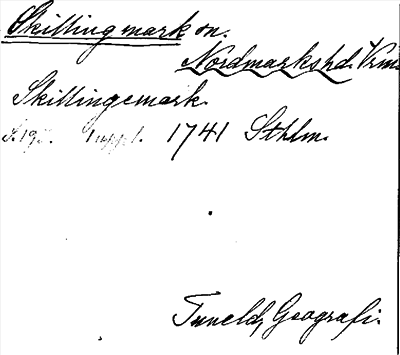 Skillingmark sn.
Nordmarks hd. Vrml
Skillingemark.
S. 193. Suppl. 1741 Sthlm.
Tuneld, Geografi.